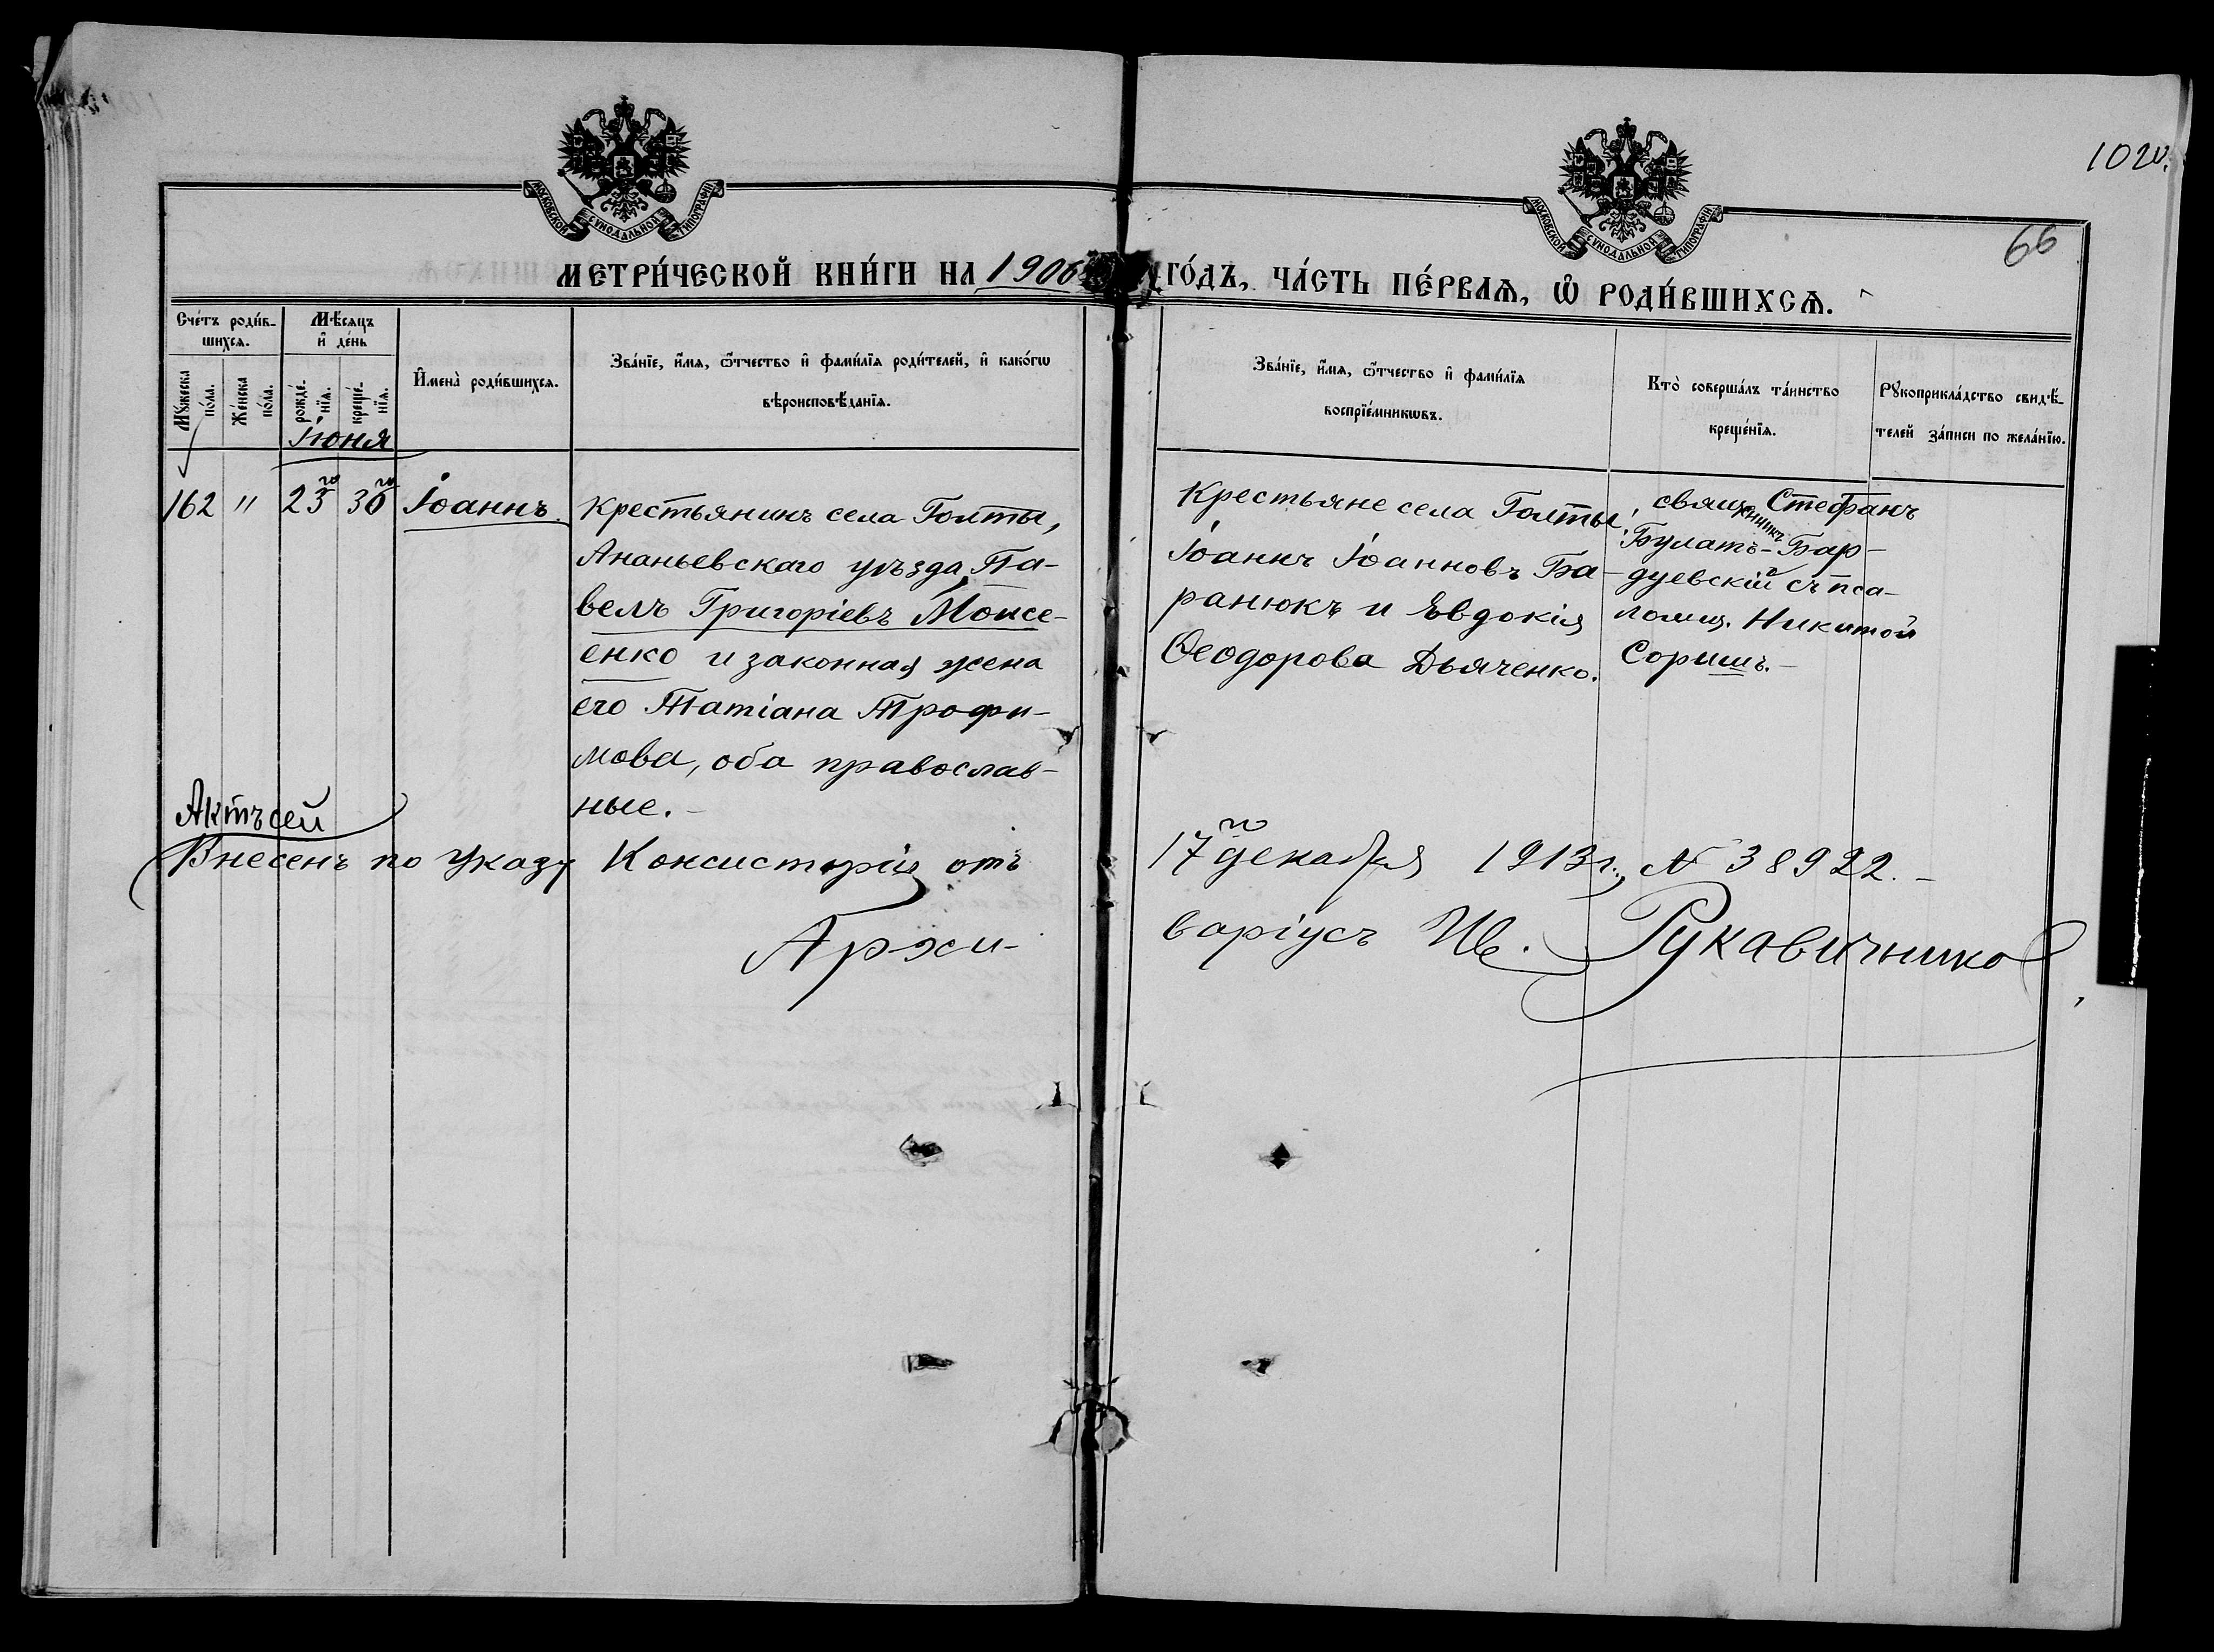 1020.
66
МОСКОВСКОЙ СѴНОДАЛЬНОЙ ТИПОГРАФІИ
МОСКОВСКОЙ СѴНОДАЛЬНОЙ ТИПОГРАФІИ
МЕТРИ́ЧЕСКОЙ КНИ́ГИ НА 1906 ГО́ДЪ, ЧА́СТЬ ПЕ́РВАѦ, Ѡ҆ РОДИ́ВШИХСѦ.
Сче́тъ роди́в-
шихсѧ.
Мꙋ́жеска
по́ла.
Же́нска
по́ла.
Мѣ́сѧцъ
и҆ де́нь
рожде́-
нїѧ.
креще́-
нїѧ.
И҆мена̀ роди́вшихсѧ.
Зва́нїе, и҆́мѧ, ѻ҆́тчество и҆ фами́лїѧ роди́телей, и҆ како́гѡ
вѣроисповѣ́данїѧ.
Зва́нїе, и҆́мѧ, ѻ҆́тчество и҆ фами́лїѧ
воспрїе́мникѡвъ.
Кто̀ соверша́лъ та́инство
креще́нїѧ.
Рꙋкоприкла́дство свидѣ́-
телей за́писи по жела́нїю.
Іюня
162 " 23го 30го Іоаннъ.
Крестьянинъ села Голты,
Ананьевскаго уѣзда, Па-
велъ Григоріевъ Моисе-
енко и законная жена
его Татіана Трофи-
мова, оба православ-
ные.-
Крестьяне села Голты:
Іоаннъ Іоанновъ Ба-
ранюкъ и Евдокія
Ѳеодорова Дьяченко.
священникъ Стефанъ
Булатъ-Бар-
дуевскій съ пса-
ломщ. Никитой
Соришъ.-
Актъ сей
Внесенъ по указу Консисторіи отъ 17го декабря 1913 г., № 38922.-
Архи-
варіусъ Ив. Рукавичников